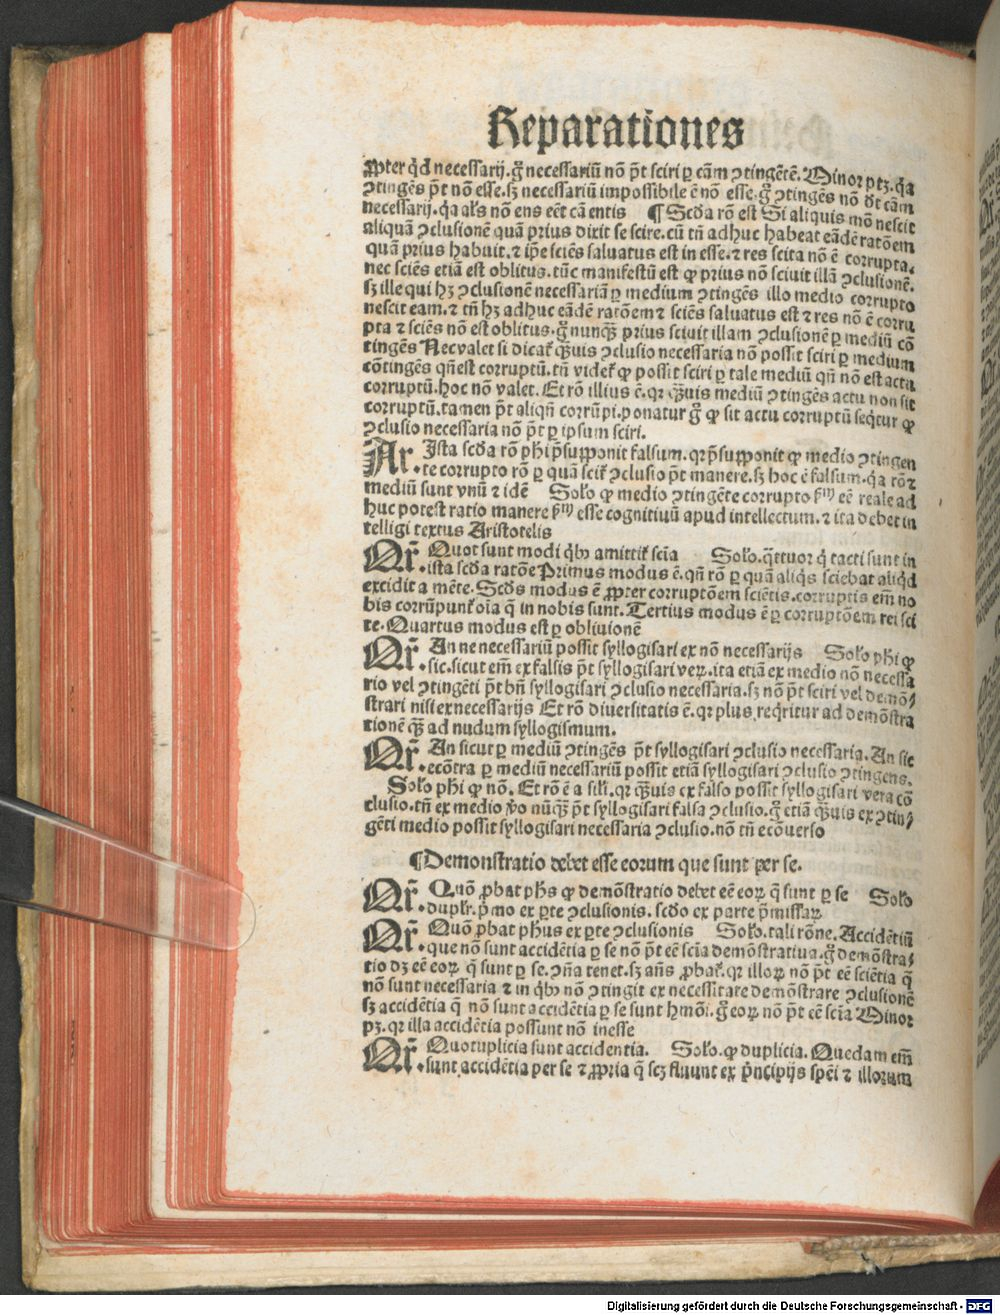 Reparationes
ꝓpter qd̓ necessarij. gͦ necessariũ nõ pñt sciri ꝑ cãm ꝯtingẽtẽ. Minor ptꝫ. qꝛ
ꝯtingẽs pñt nõ esse. sꝫ necessariũ impossibile ẽ nõ esse. gͦ ꝯtingẽs nõ dꝛ cãm
necessarij. qꝛ als nõ ens eẽt cã entis ¶ Scd̓a rõ est Si aliquis mõ nescit
aliquã ꝯclusionẽ quã prius dixit se scire. cũ tñ adhuc habeat eãdẽ ratõem
quã prius habuit. ⁊ ip̃e sciẽs saluatus est in esse. ⁊ res scita nõ ẽ corrupta.
nec sciẽs etiã est oblitus. tũc manifestũ est ꝙ prius nõ sciuit illã ꝯclusionẽ.
sꝫ ille qui hꝫ ꝯclusionẽ necessariã ꝑ medium ꝯtingẽs illo medio corrupto
nescit eam. ⁊ tñ hꝫ adhuc eãdẽ ratõem ⁊ sciẽs saluatus est ⁊ res nõ ẽ corru
pta ⁊ sciẽs nõ est oblitus. gͦ nunqꝫ prius sciuit illam ꝯclusionẽ ꝑ mediũ cõ
tingẽs Nec valet si dicaꝛ qꝫuis ꝯclusio necessaria nõ possit sciri ꝑ medium
cõtingẽs qñ est corruptũ. tñ videꝛ ꝙ possit sciri ꝑ tale mediũ qñ nõ est actu
corruptũ. hoc nõ valet. Et rõ illius ẽ. qꝛ qꝫuis mediũ ꝯtingẽs actu non sit
corruptũ. tamen pñt aliqñ corrũpi. ponatur gͦ ꝙ sit actu corruptũ seqͥtur ꝙ
ꝯclusio necessaria nõ pñt ꝑ ipsum sciri.
Ar. Ista scd̓a rõ ph̓i p̃supponit falsum. qꝛ p̃supponit ꝙ medio ꝯtingen
te corrupto rõ ꝑ quã sciꝛ ꝯclusio pñt manere. sꝫ hoc ẽ falsum. qꝛ rõ ⁊
mediũ sunt vnũ ⁊ idẽ Solo ꝙ medio ꝯtingẽte corrupto ẜm eẽ reale ad
huc potest ratio manere ẜm esse cognitiuũ apud intellectum. ⁊ ita debet in
telligi textus Aristotelis
Qr̃. Quot sunt modi qͥbꝰ amittiꝛ scĩa Solo. qttuor qͥ tacti sunt in
ista scd̓a ratõe Primus modus ẽ. qñ rõ ꝑ quã aliqͥs sciebat aliqd̓
excidit a mẽte. Scd̓s modus ẽ ꝓpter corruptõem sciẽtis. corruptis em̃ no
bis corrũpunꝛ oĩa q̃ in nobis sunt. Tertius modus ẽ ꝑ corruptõem rei sci
te. Quartus modus est ꝑ obliuionẽ
Qr̃. An ne necessariũ possit syllogisari ex nõ necessarijs Solo ph̓i ꝙ
sic. sicut em̃ ex falsis pñt syllogisari veꝝ. ita etiã ex medio nõ necessa
rio vel ꝯtingẽti pñt bñ syllogisari ꝯclusio necessaria. sꝫ nõ pñt sciri vel demõ/
strari nisi ex necessarijs Et rõ diuersitatis ẽ. qꝛ plus reqͥritur ad demõstra
tionẽ qꝫ ad nudum syllogismum.
Qr̃. An sicut ꝑ mediũ ꝯtingẽs pñt syllogisari ꝯclusio necessaria. An sic
ecõtra ꝑ mediũ necessariũ possit etiã syllogisari ꝯclusio ꝯtingens.
Solo ph̓i ꝙ nõ. Et rõ ẽ a sili. qꝛ qꝫuis ex falso possit syllogisari vera cõ
clusio. tñ ex medio v̓o nũqꝫ pñt syllogisari falsa ꝯclusio. gͦ etiã qꝫuis ex ꝯtin/
gẽti medio possit syllogisari necessaria ꝯclusio. nõ tñ ecõuerso
¶ Demonstratio debet esse eorum que sunt per se.
Qr̃. Quõ ꝓbat ph̓s ꝙ demõstratio debet eẽ eoꝝ q̃ sunt ꝑ se Solo
duplr̃. p̃mo ex ꝑte ꝯclusionis. scd̓o ex parte p̃missaꝝ
Qr̃. Quõ ꝓbat phus ex ꝑte ꝯclusionis Solo. tali rõne. Accidẽtiũ
que nõ sunt accidẽtia ꝑ se nõ pñt eẽ scĩa demõstratiua. gͦ demõstra/
tio dꝫ eẽ eoꝝ q̃ sunt ꝑ se. ꝯñа tenet. sꝫ añs ꝓbaꝛ. qꝛ illoꝝ nõ pñt eẽ sciẽtia q̃
nõ sunt necessaria ⁊ in qͥbꝰ nõ ꝯtingit ex necessitate demõstrare ꝯclusionẽ
sꝫ accidẽtia q̃ nõ sunt accidẽtia ꝑ se sunt hmõi. gͦ eoꝝ nõ pñt eẽ scĩa Minor
pꝫ. qꝛ illa accidẽtia possunt nõ inesse
Qr̃. Quotuplicia sunt accidentia. Solo. ꝙ duplicia. Quedam em̃
sunt accidẽtia per se ⁊ ꝓpria q̃ scꝫ fluunt ex p̃ncipijs sp̃ei ⁊ illorum
Digitalisierung gefördert durch die Deutsche Forschungsgemeinschaft - DFG